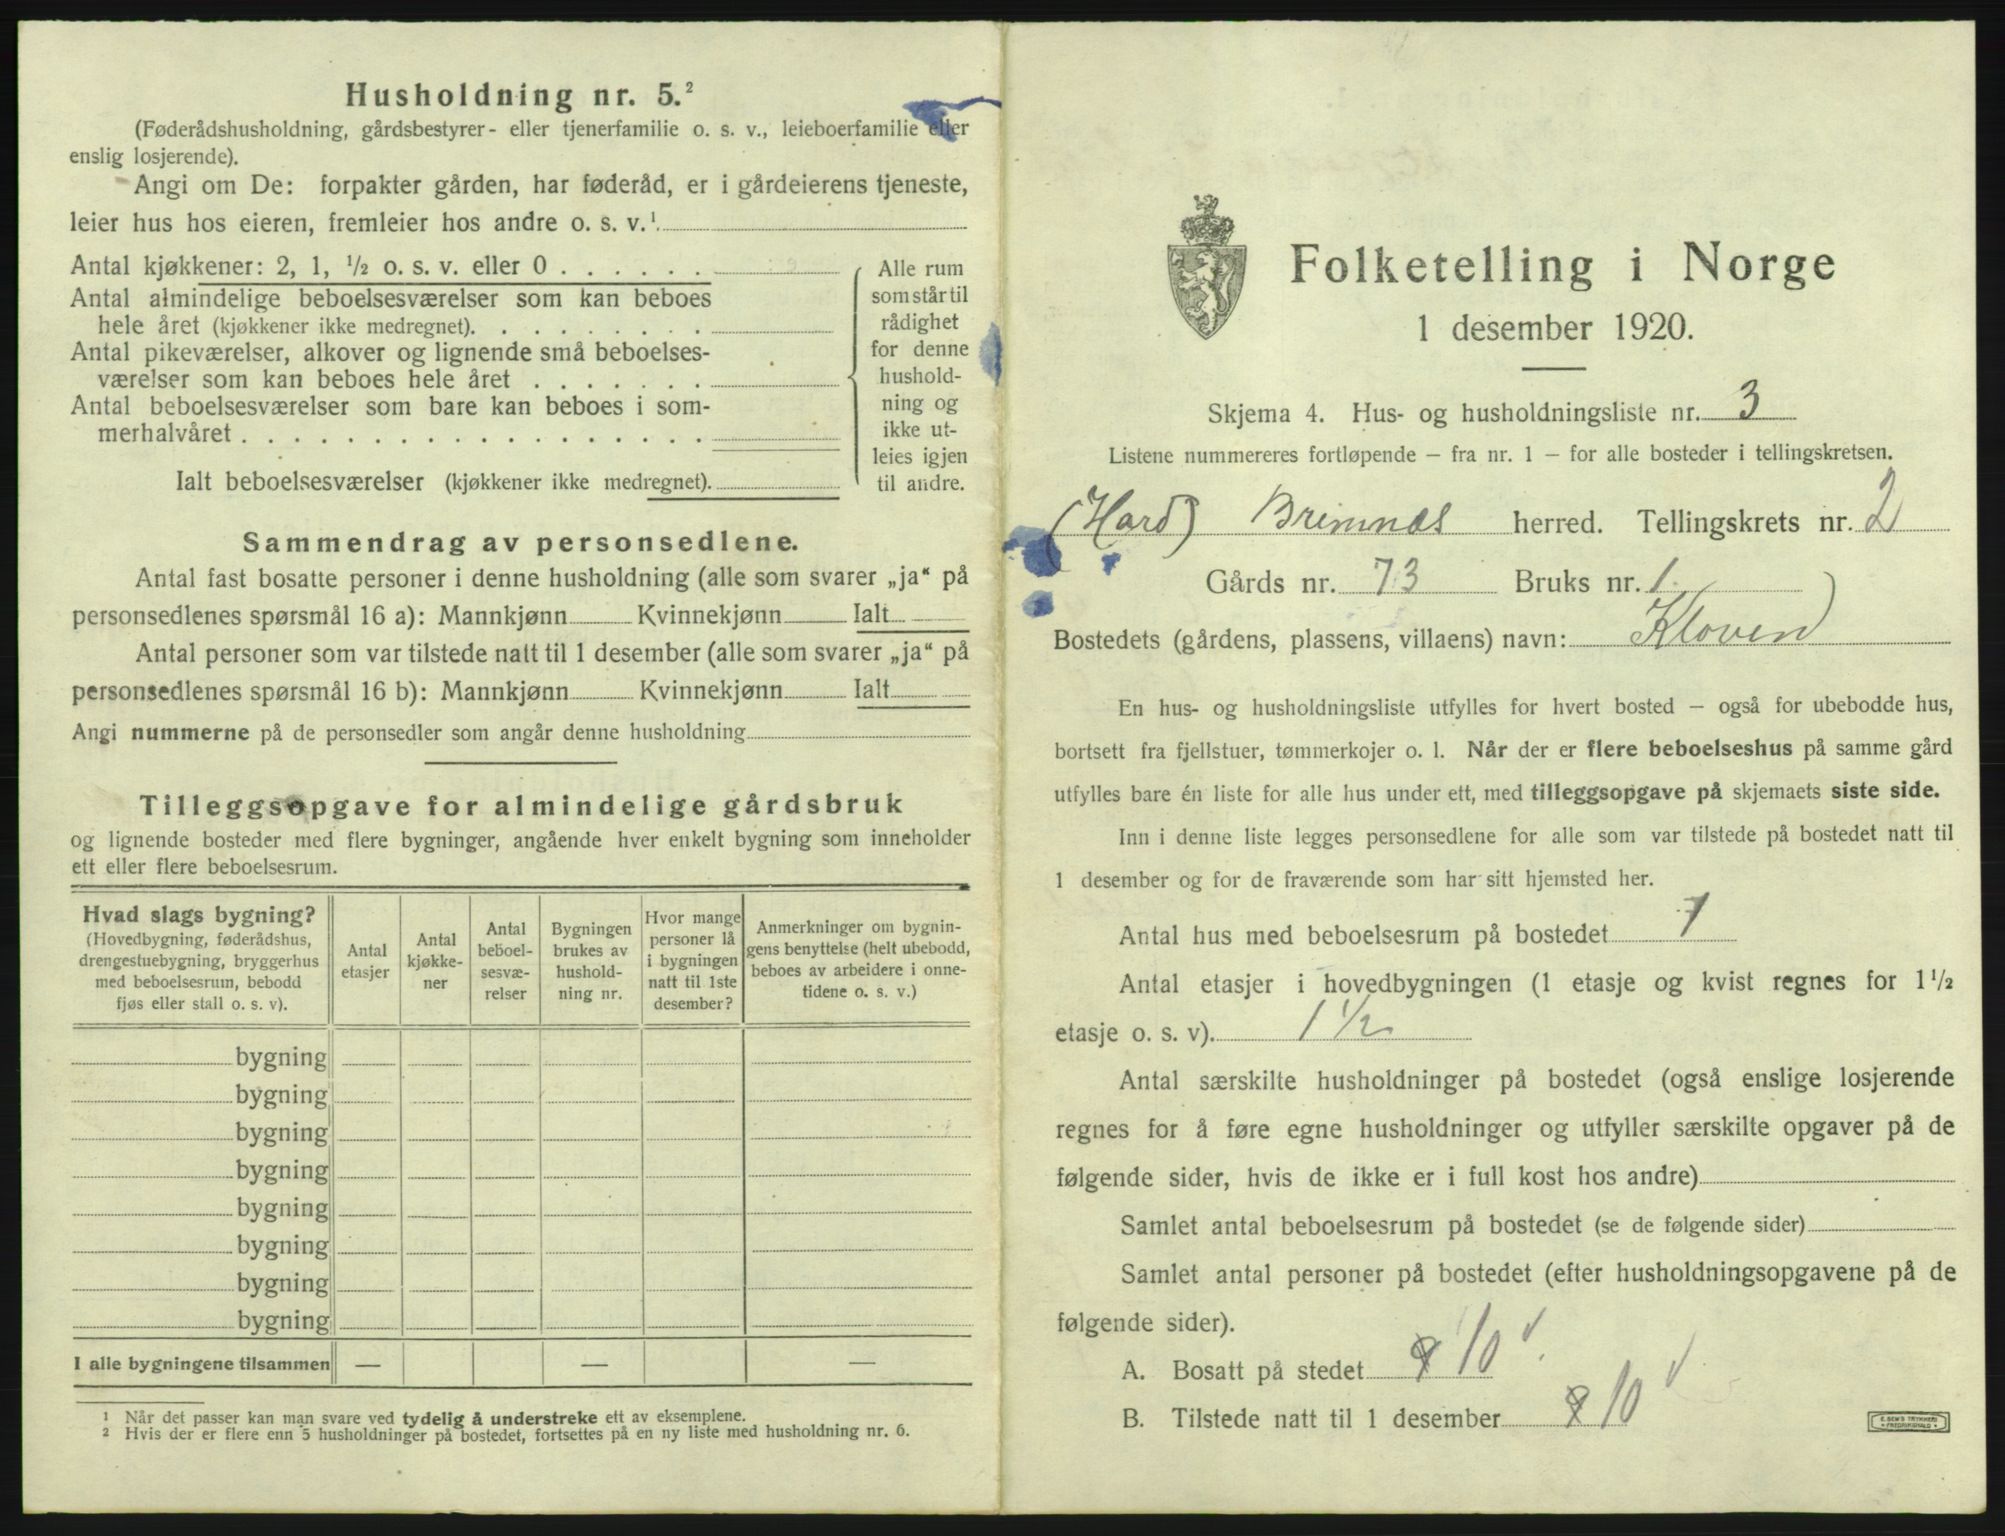 Husholdning nr. 5.²
(Føderådshusholdning, gårdsbestyrer- eller tjenerfamilie o. s. v., leieboerfamilie eller
enslig losjerende).
Angi om De: forpakter gården, har føderåd, er i gårdeierens tjeneste,
leier hus hos eieren, fremleier hos andre o. s. v.¹
Antal kjøkkener: 2, 1, ½ o. s. v. eller 0 . . . . . .
Antal almindelige beboelsesværelser som kan beboes
hele året (kjøkkener ikke medregnet). . . . . . . . .
Antal pikeværelser, alkover og lignende små beboelses-
værelser som kan beboes hele året . . . . . . .
Antal beboelsesværelser som bare kan beboes i som-
merhalvåret . . . . . . . . . . . . . . . . . .
Ialt beboelsesværelser (kjøkkener ikke medregnet).
Alle rum
som står til
rådighet
for denne
hushold-
ning og
ikke ut-
leies igjen
til andre.
Sammendrag av personsedlene.
Antal fast bosatte personer i denne husholdning (alle som svarer „ja“ på
personsedlenes spørsmål 16 a): Mannkjønn Kvinnekjønn Ialt
Antal personer som var tilstede natt til 1 desember (alle som svarer „ja“ på
personsedlenes spørsmål 16 b): Mannkjønn Kvinnekjønn Ialt
Angi nummerne på de personsedler som angår denne husholdning
Tilleggsopgave for almindelige gårdsbruk
og lignende bosteder med flere bygninger, angående hver enkelt bygning som inneholder
ett eller flere beboelsesrum.
Hvad slags bygning?
(Hovedbygning, føderådshus,
drengestuebygning, bryggerhus
med beboelsesrum, bebodd
fjøs eller stall o. s. v).
Antal
etasjer
Antal
kjøkke-
ner
Antal
beboel-
sesvæ-
relser
Bygningen
brukes av
hushold-
ning nr.
Hvor mange
personer lå
i bygningen
natt til 1ste
desember?
Anmerkninger om bygnin-
gens benyttelse (helt ubebodd,
beboes av arbeidere i onne-
tidene o. s. v.)
bygning
bygning
bygning
bygning
bygning
bygning
bygning
bygning
I alle bygningene tilsammen — — —
¹ Når det passer kan man svare ved tydelig å understreke ett av eksemplene.
² Hvis der er flere enn 5 husholdninger på bostedet, fortsettes på en ny liste med husholdning nr. 6.
Folketelling i Norge
1 desember 1920.
Skjema 4. Hus- og husholdningsliste nr. 3
Listene nummereres fortløpende – fra nr. 1 – for alle bosteder i tellingskretsen.
(Hard) Brimnæs herred. Tellingskrets nr. 2
Gårds nr. 73 Bruks nr. 1
Bostedets (gårdens, plassens, villaens) navn: Kloven)
En hus- og husholdningsliste utfylles for hvert bosted – også for ubebodde hus,
bortsett fra fjellstuer, tømmerkojer o. l. Når der er flere beboelseshus på samme gård
utfylles bare én liste for alle hus under ett, med tilleggsopgave på skjemaets siste side.
Inn i denne liste legges personsedlene for alle som var tilstede på bostedet natt til
1 desember og for de fraværende som har sitt hjemsted her.
Antal hus med beboelsesrum på bostedet 1
Antal etasjer i hovedbygningen (1 etasje og kvist regnes for 1½
etasje o. s. v). 1½
Antal særskilte husholdninger på bostedet (også enslige losjerende
regnes for å føre egne husholdninger og utfyller særskilte opgaver på de
følgende sider, hvis de ikke er i full kost hos andre)
Samlet antal beboelsesrum på bostedet (se de følgende sider)
Samlet antal personer på bostedet (efter husholdningsopgavene på de
følgende sider).
A. Bosatt på stedet 10 √
B. Tilstede natt til 1 desember 10 √